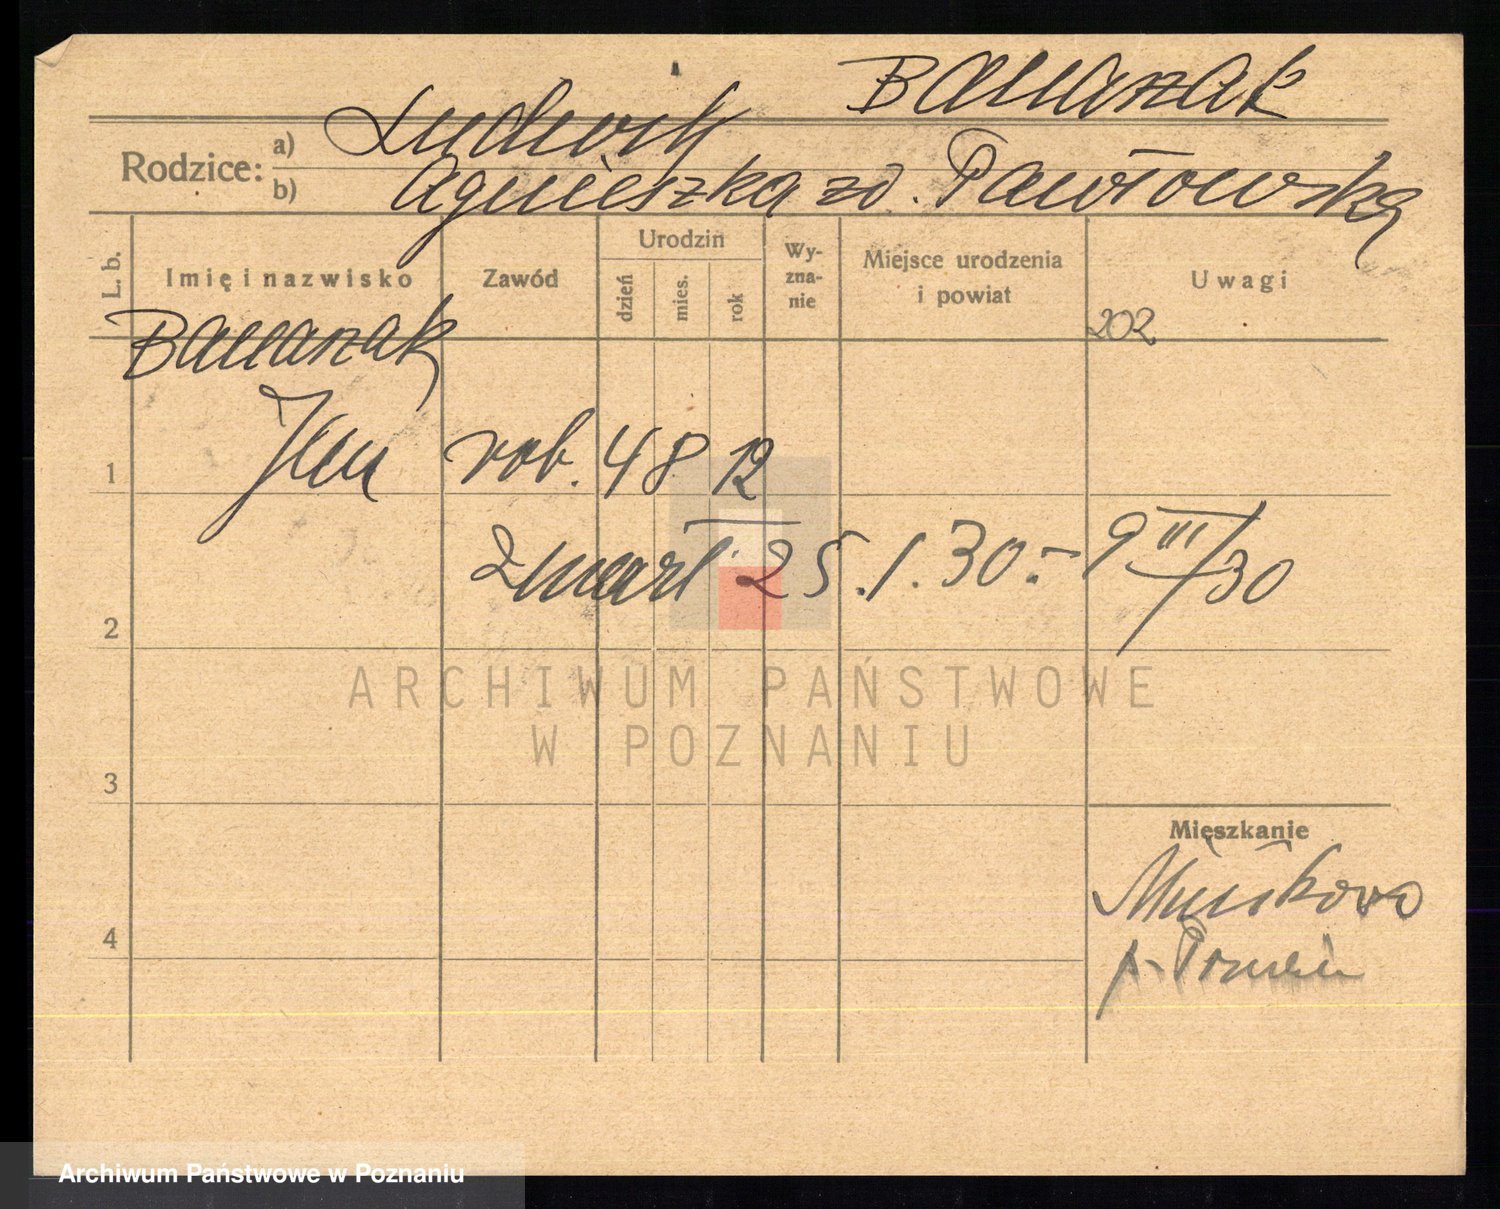 Banaszak
Rodzice: a) Ludwik
b) Agnieszka zd. Pawłowska
L. b.
Imię i nazwisko
Zawód
Urodzin
dzień
mies.
rok
Wy-
zna-
nie
Miejsce urodzenia
i powiat
Uwagi
202
Banaszak
1 Jan rob. 4 8 12
2 zmarł 25.1.30.- 9 III/30
ARCHIWUM PAŃSTWOWE
W POZNANIU
3
Mieszkanie
4
Archiwum Państwowe w Poznaniu